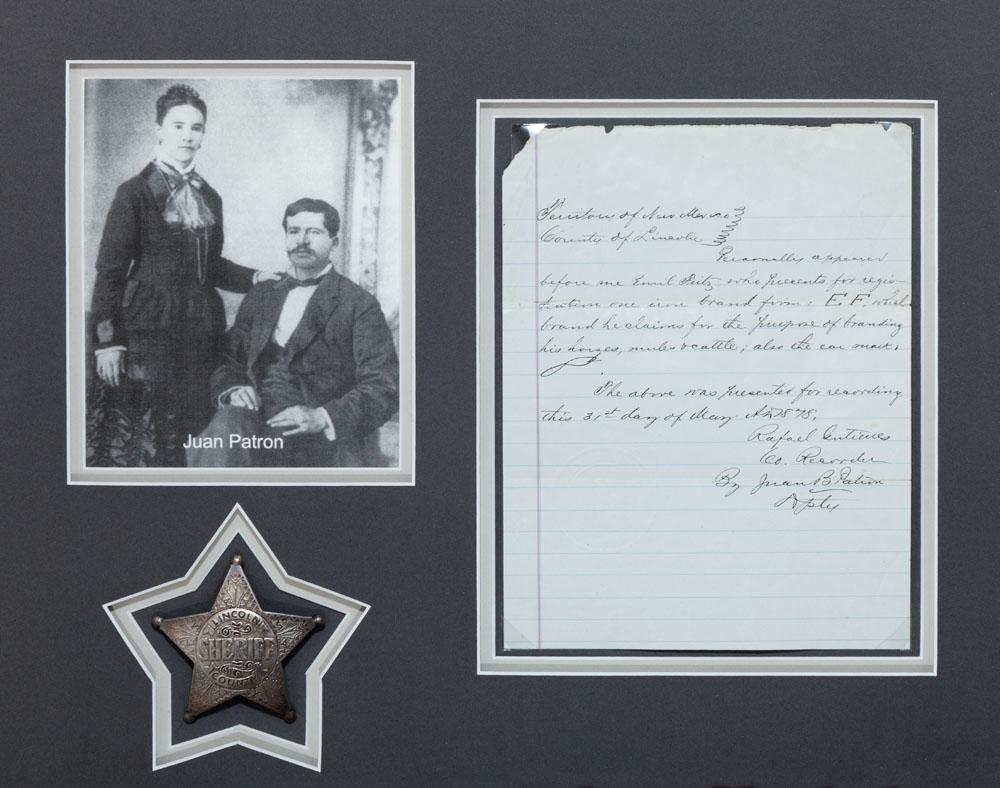 Juan Patron
LINCOLN
SHERIFF
COUNTY
Territory of New Mexico
County of Lincoln
Personally appeared
before me Emil Fritz who presents for regis-
tration one iron brand form: E F, which
brand he claims for the purpose of branding
his horses, mules & cattle; also the ear mark.
The above was presented for recording
this 31st day of May AD 1878,
Rafael Gutierres
Co. Recorder
By Juan B Patron
Dpty